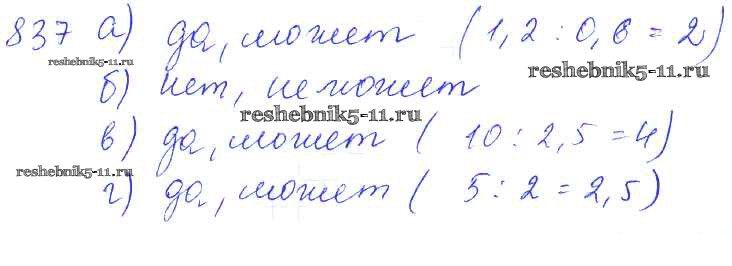 837 а) да, может (1,2 : 0,6 = 2)
reshebnik5-11.ru reshebnik5-11.ru
б) нет, не может
reshebnik5-11.ru
в) да, может ( 10 : 2,5 = 4)
reshebnik5-11.ru
г) да, может ( 5 : 2 = 2,5)